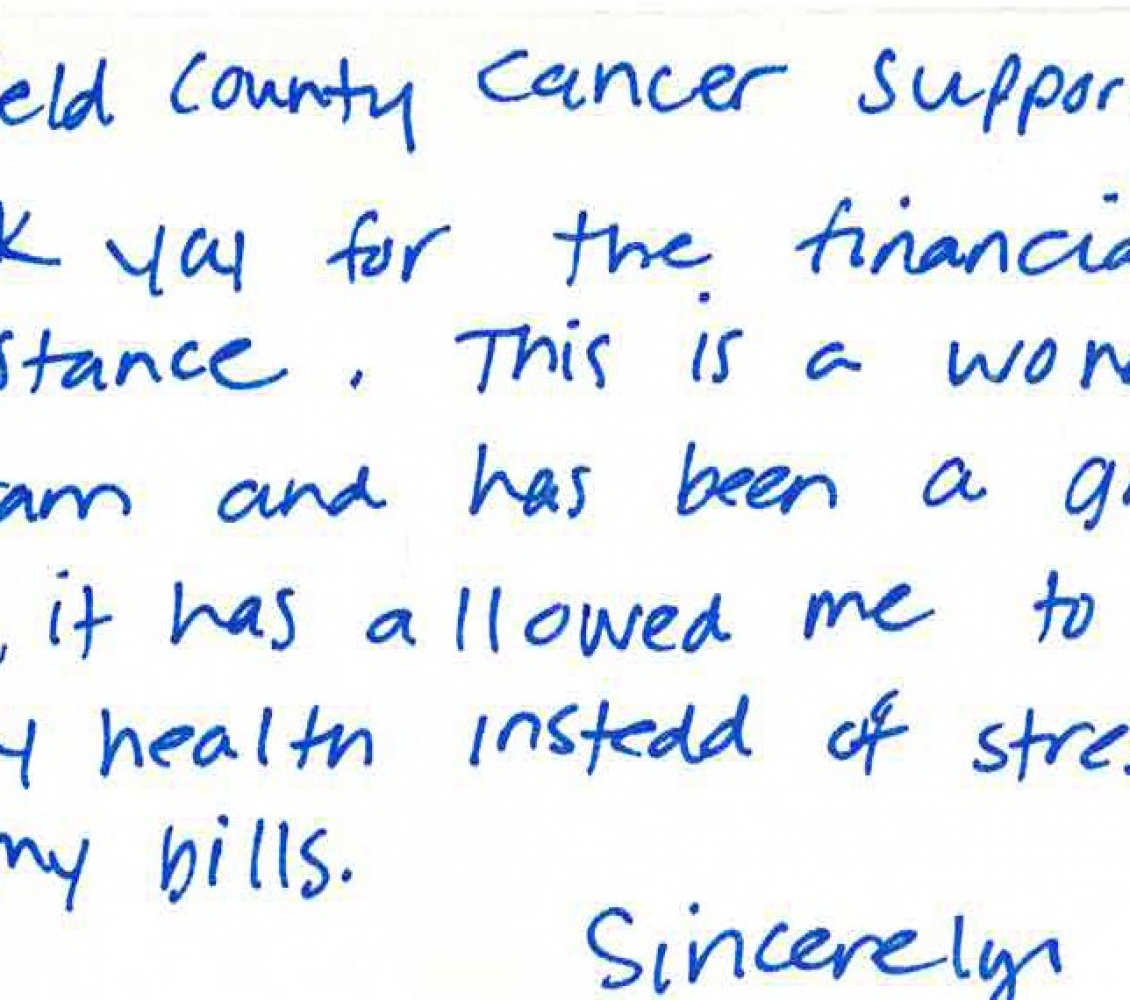 eld County Cancer Suppor
k you for the financia
stance. This is a won
am and has been a g
, it has allowed me to
y health instead of stres
my bills.
Sincerely